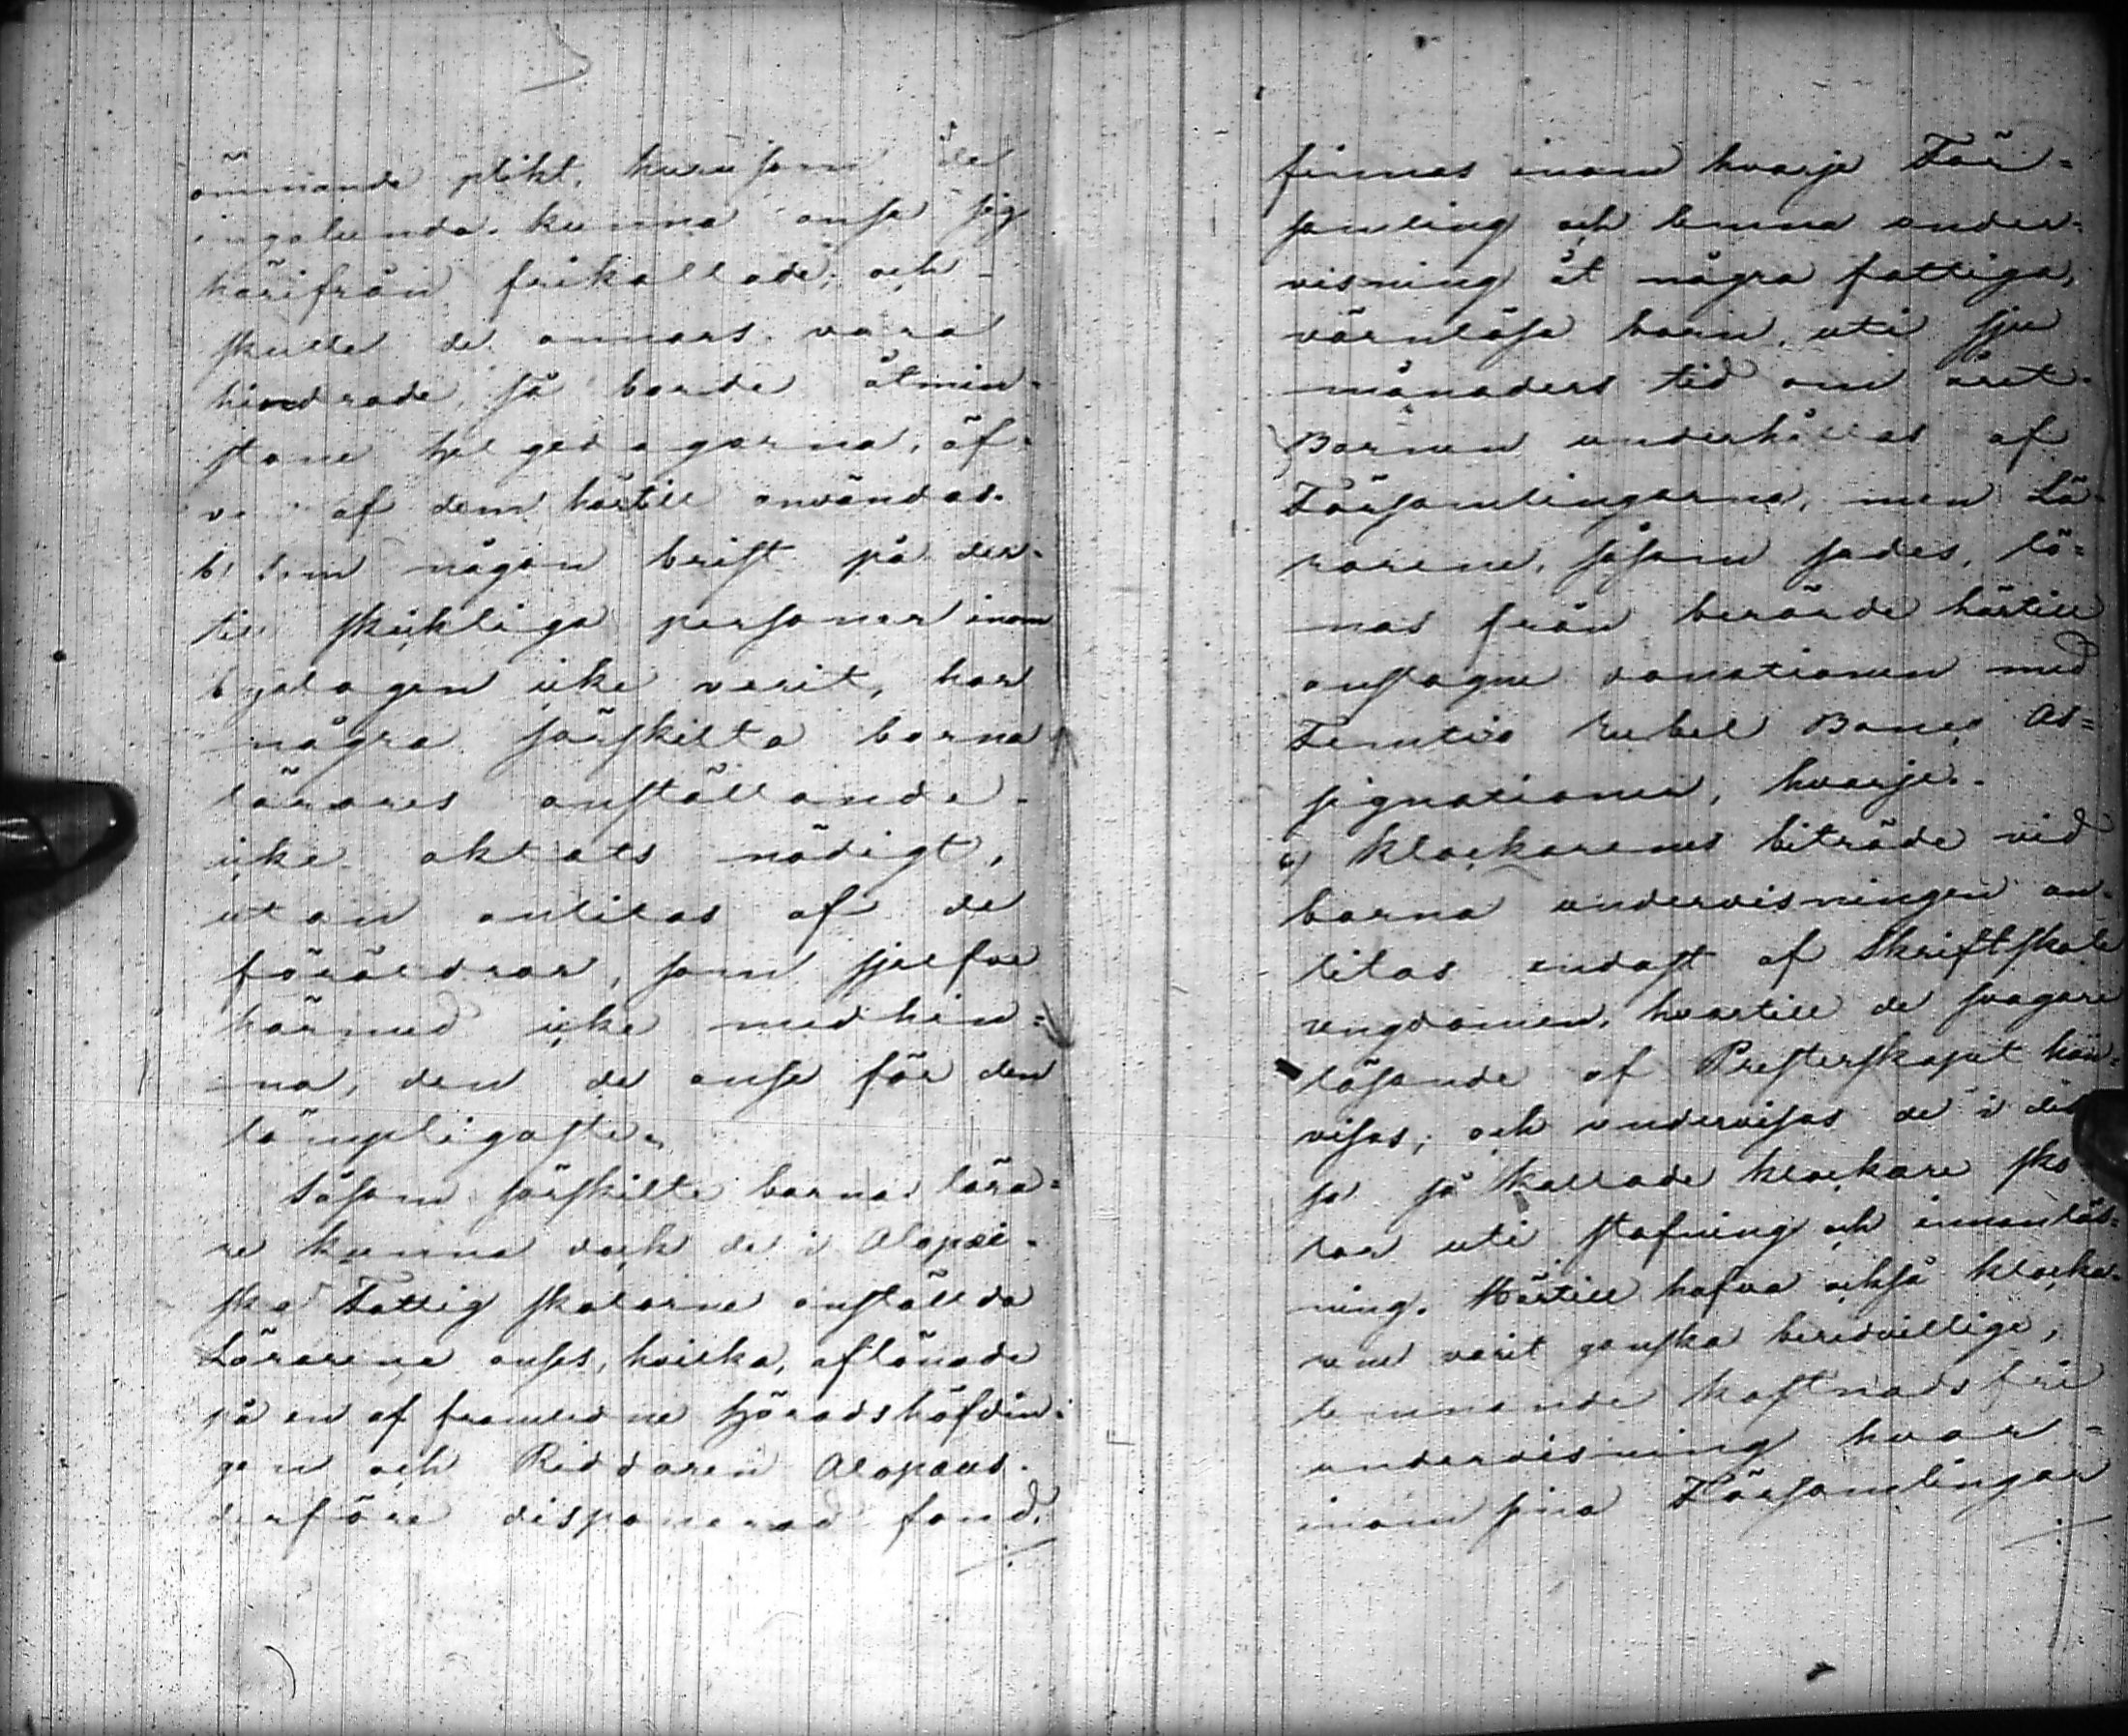 ömmande plikt, hurusom de
ingalunda kunna anse sig
härifrån frikallade, och
skulle de annars vara
hindrade, så borde åtmin-
stone helgedagarna, äf-
ven af dem härtill användas.
Som någon brist på der-
till skickliga personer inom
byalagen icke varit, har
några särskilta barna
lärares anställande
icke aktats nödigt,
utan anlitas af de
föräldrar, som sjelfve
härmed icke medhin=
na, den de anse för den
lämpligaste.
Såsom särskilte barna lära=
re kunna dock de i Alopæi-
ska Fattig skolorna anställda
Lärarene anses, hvilka, aflönade
på en af framledne Häradshöfdin-
gen och Riddaren Alopæus
derföre disponerad fond,
./.
finnas inom hvarje För=
samling och lemna under-
visning åt några fattiga,
värnlösa barn, uti sju
månaders tid om året.
Barnen underhållas af
Församlingarna, men Lä-
rarene, såsom sades, lö=
nas från berörde härtill
anslagne donationen med
Femtio Rubel Banco As=
signationer, hvarje.
6) Klockarenes biträde vid
barna undervisningen an-
litas endast af Skriftskole
ungdomen, hvartill de svagare
läsande af Presterskapet hän-
visas; och undervisas de i des
sa så kallade klockare sko
lor uti stafning och innanläs-
ning. Härtill hafva också klocka-
rene varit ganska beredvillige,
lemnande kostnadsfri
undervisning hvar-
inom sina Församlingar
./.